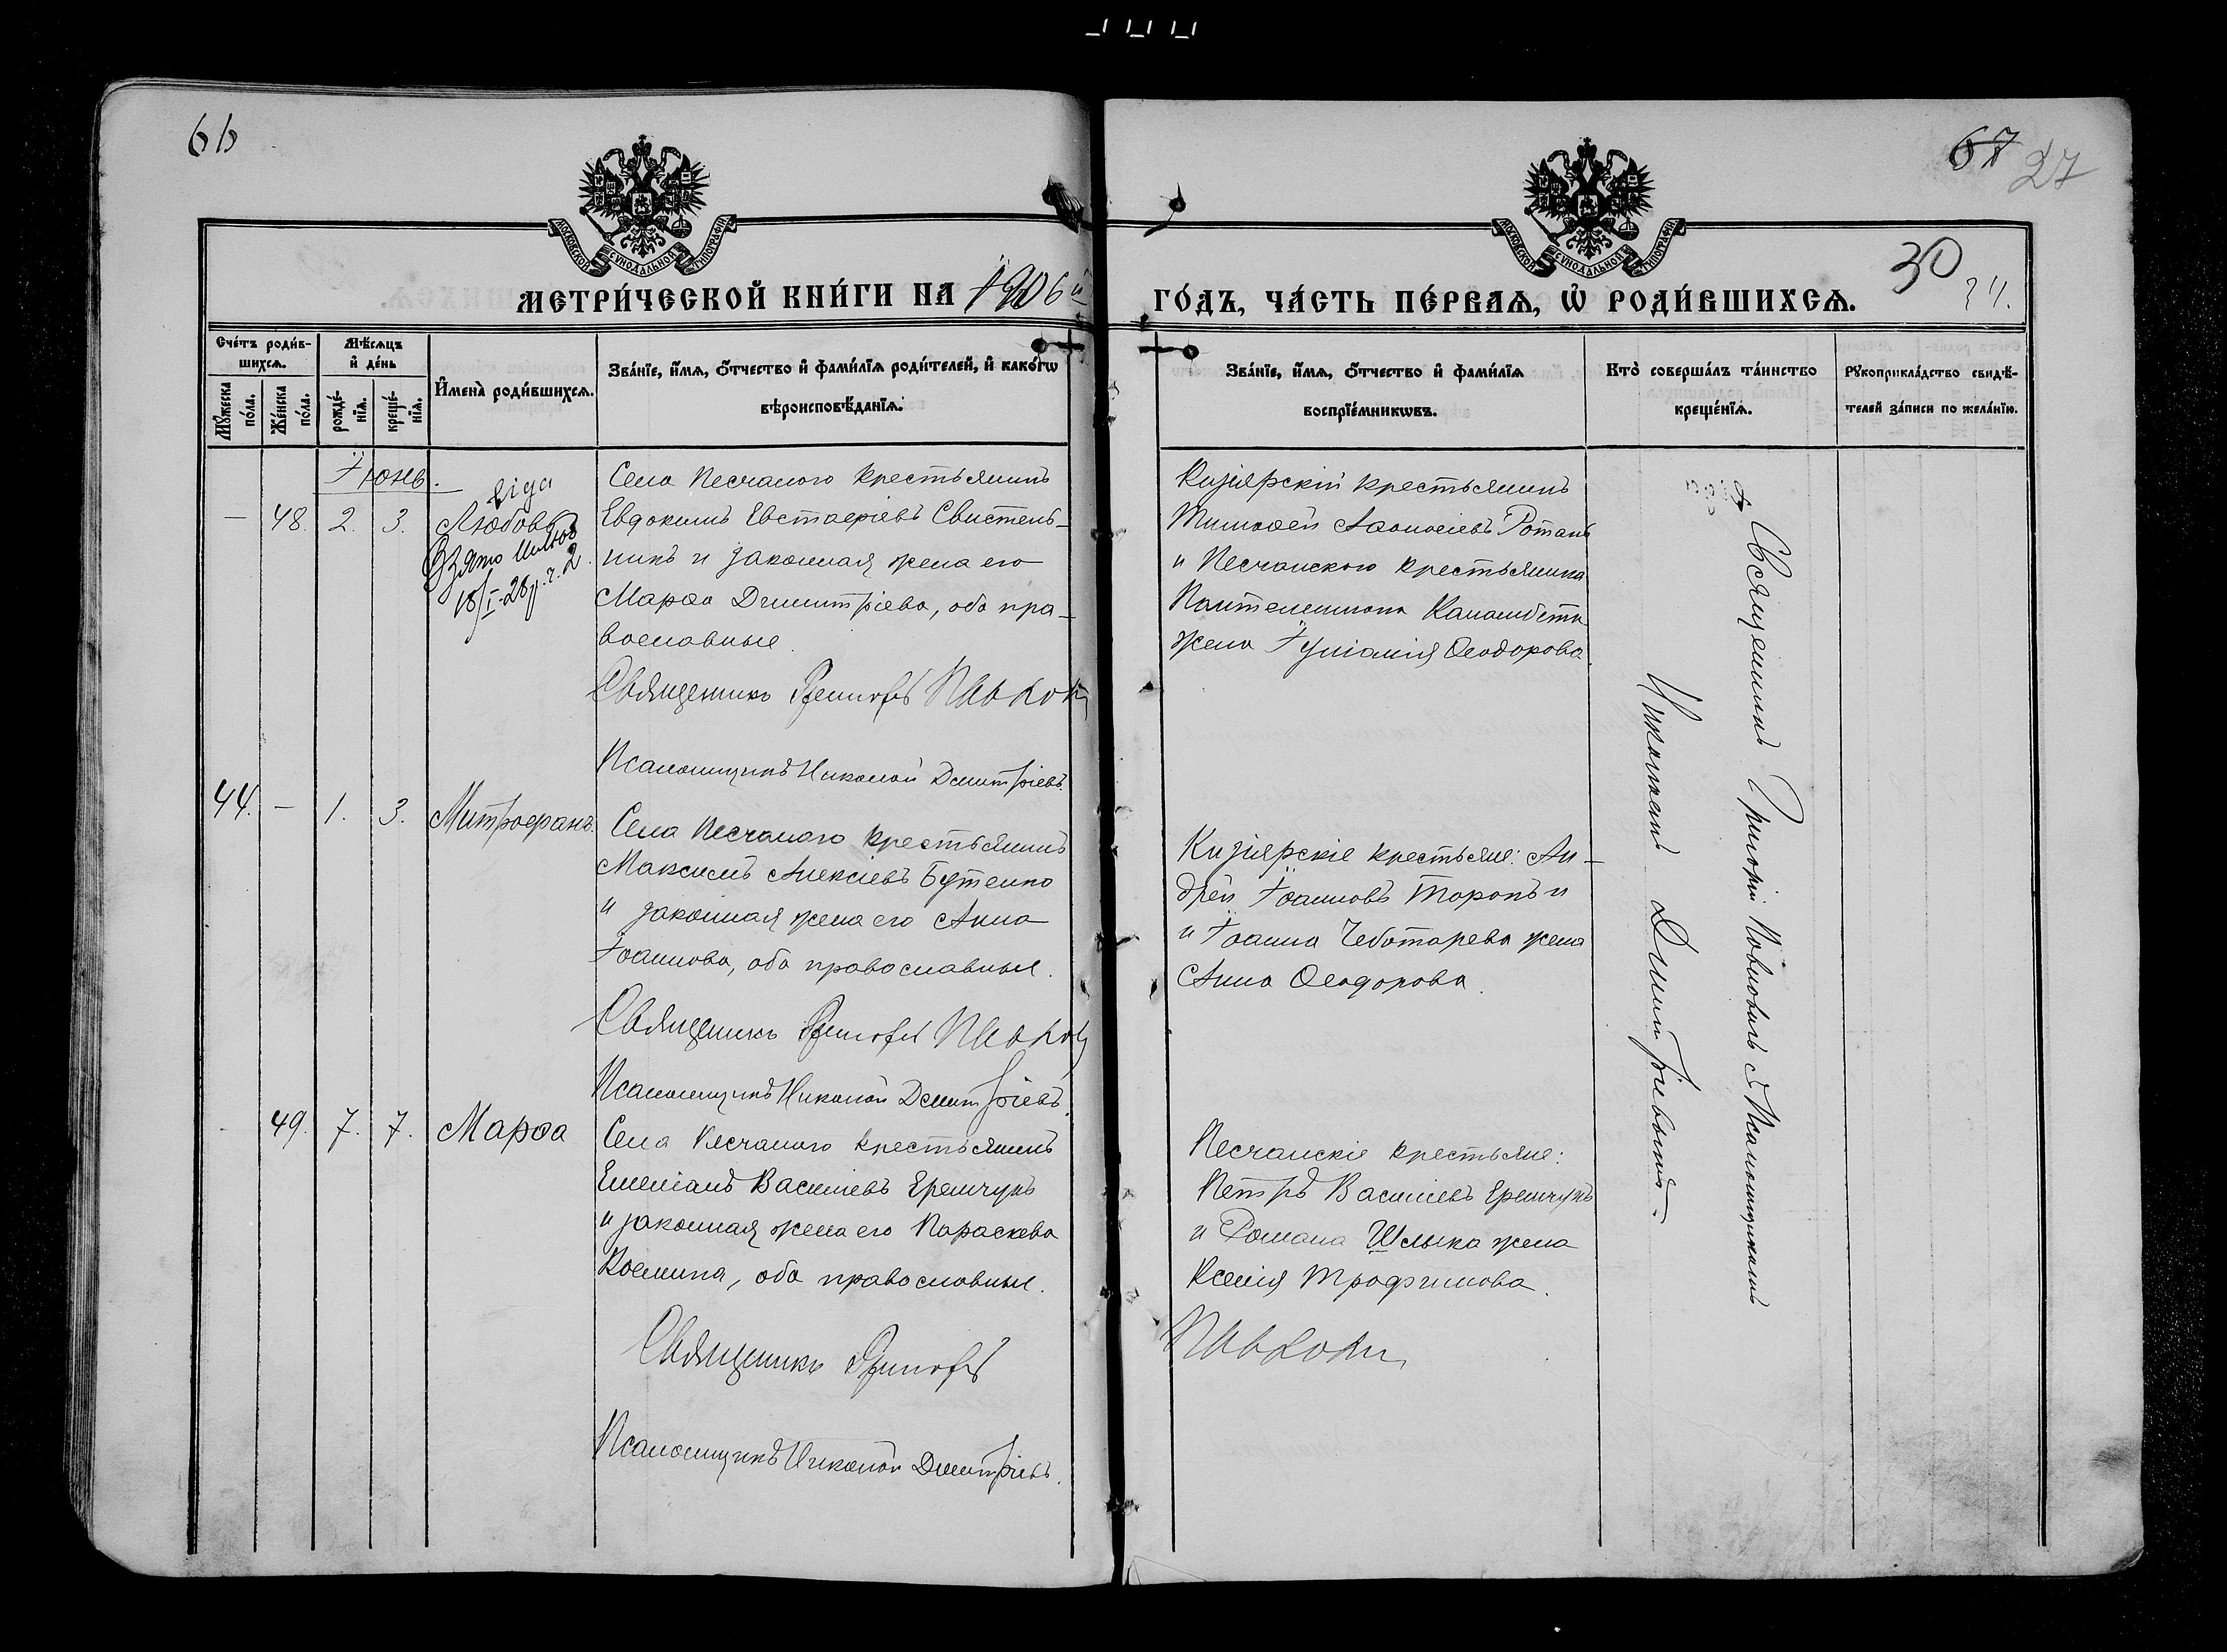 66
67 27
МОСКОВСКОЙ СѴНОДАЛЬНОЙ ТИПОГРАФІИ
МОСКОВСКОЙ СѴНОДАЛЬНОЙ ТИПОГРАФІИ
МЕТРИ́ЧЕСКОЙ КНИ́ГИ НА 1906й
ГО́ДЪ, ЧА́СТЬ ПЕ́РВАѦ, Ѡ҆ РОДИ́ВШИХСѦ.
30
Сче́тъ роди́в-
шихсѧ.
Мꙋ́жеска по́ла.
Же́нска по́ла.
Мѣ́сѧцъ
и҆ де́нь
рожде́-
нїѧ.
креще́-
нїѧ.
И҆мена̀ роди́вшихсѧ.
Зва́нїе, и҆́мѧ, ѻ҆́тчество и҆ фами́лїѧ роди́телей, и҆ како́гѡ
вѣроисповѣ́данїѧ.
Зва́нїе, и҆́мѧ, ѻ҆́тчество и҆ фами́лїѧ
воспрїе́мникѡвъ.
Кто̀ соверша́лъ та́инство
креще́нїѧ.
Рꙋкоприкла́дство свидѣ́-
телей за́писи по жела́нїю.
Іюнь.
— 48. 2. 3.
Любовь
Взято
18/I-28 г. 2.
Села Песчаного крестьянинъ
Евдокимъ Евстаѳіевъ Свистель-
никъ и законная жена его
Марѳа Димитріева, оба пра-
вославные.
Священникъ Григорій Павлов
Псаломщикъ Николай Димитріевъ.
Кизіярскій крестьянинъ
Тимоѳей Аѳонасіевъ Ротань
и Песчанского крестьянина
Пантелеимона
жена Іуліанія Ѳеодорова.
44. — 1. 3. Митрофанъ.
Села Песчаного крестьянинъ
Максимъ Алексіевъ Бутенко
и законная жена его Анна
Іоаннова, оба православные.
Священникъ Григорій Павлов
Псаломщикъ Николай Димитріевъ.
Кизіярскіе крестьяне: Ан-
дрей Іоанновъ Торопъ и
и Іоанна Чеботарева жена
Анна Ѳеодорова.
49. 7. 7. Марѳа
Села Песчаного крестьянинъ
Емеліанъ Василіевъ Еремчукъ
и законная жена его Параскева
Космина, оба православные.
Священникъ Григорій
Псаломщикъ Николай Димитріевъ.
Песчанскіе крестьяне:
Петръ Василіевъ Еремчукъ
и Романа Шлыка жена
Ксенія Трофимова.
Павлов
Священникъ Григорій Павловъ съ Псаломщикомъ
Николаемъ Димитріевымъ.